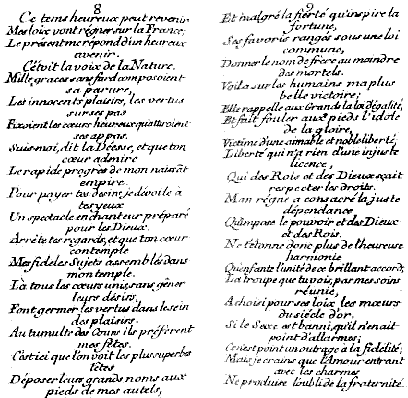 8
Ce tems heureux peut revenir
Mes loix vont régner sur la France;
Le présent me répond d'un heureux
avenir.
C'étoit la voix de la Nature.
Mille graces sans fard composoient
sa parure,
Les innocents plaisirs, les vertus
sur ses pas
Fixoient les cœurs heureux qui suivoient
ses appas.
Suis moi, dit la Déesse, et que ton
cœur admire
Le rapide progrès de mon naissāt
empire.
Pour payer tes desirs, je dévoile à
tes yeux
Un spectacle enchanteur préparé
pour les Dieux.
Arrête tes regards, et que ton cœur
contemple
Mes fideles Sujets assemblés dans
mon temple.
Là tous les cœurs unis, sans gêner
leurs désirs,
Font germer les vertus dans le sein
des plaisirs.
Au tumulte des Cours ils préferent
mes fêtes.
C'est ici que l'on voit les plus superbes
têtes
Déposer leurs grands noms aux
pieds de mes autels,
9
Et malgré la fierté qu'inspire la
fortune,
Ses favoris rangés sous une loi
commune,
Donner le nom de frere au moindre
des mortels.
Voila sur les humains ma plus
belle victoire;
Elle rappelle aux Grands la loi d'égalité,
Et fait fouler aux pieds l'idole
de la gloire,
Victime d'une aimable et noble liberté;
Liberté qui n'a rien d'une injuste
licence,
Qui des Rois et des Dieux sçait
respecter les droits.
Mon règne a consacré la juste
dépendance
Qu'impose le pouvoir et des Dieux
et des Rois.
Ne t'étonne donc plus de l'heureuse
harmonie
Qu'enfante l'unité de ce brillant accord;
La troupe que tu vois, par mes soins
réunie,
A choisi pour ses loix les mœurs
du siécle d'or.
Si le Sexe est banni, qu'il n'en ait
point d'allarmes;
Ce n'est point un outrage à la fidélité;
Mais je crains que l'Amour entrant
avec les charmes
Ne produise l'oubli de la fraternité.